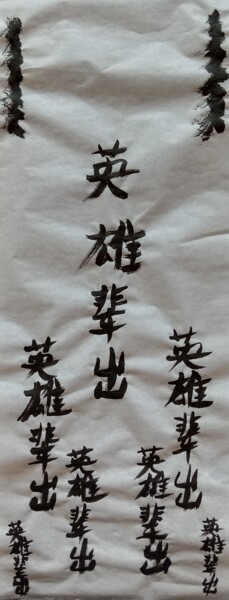 英雄辈出
英雄辈出
英雄辈出
英雄辈出
英雄辈出
英雄辈出
英雄辈出